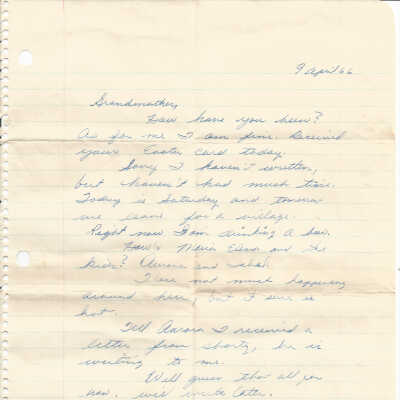 9 April 66
Grandmother,
How have you been?
As for me I am fine. Received
your Easter card today.
Sorry I haven't written,
but haven't had much time.
Today is Saturday and
we leave for a village.
Right now I am drinking a
How's Maria Elena and the
kids? Aurora and
not much happening
around here, but it sure is
hot.
Tell Aurora I received a
letter from Shorty, he is
writing to me.
Well guess that all for
now, will write later.